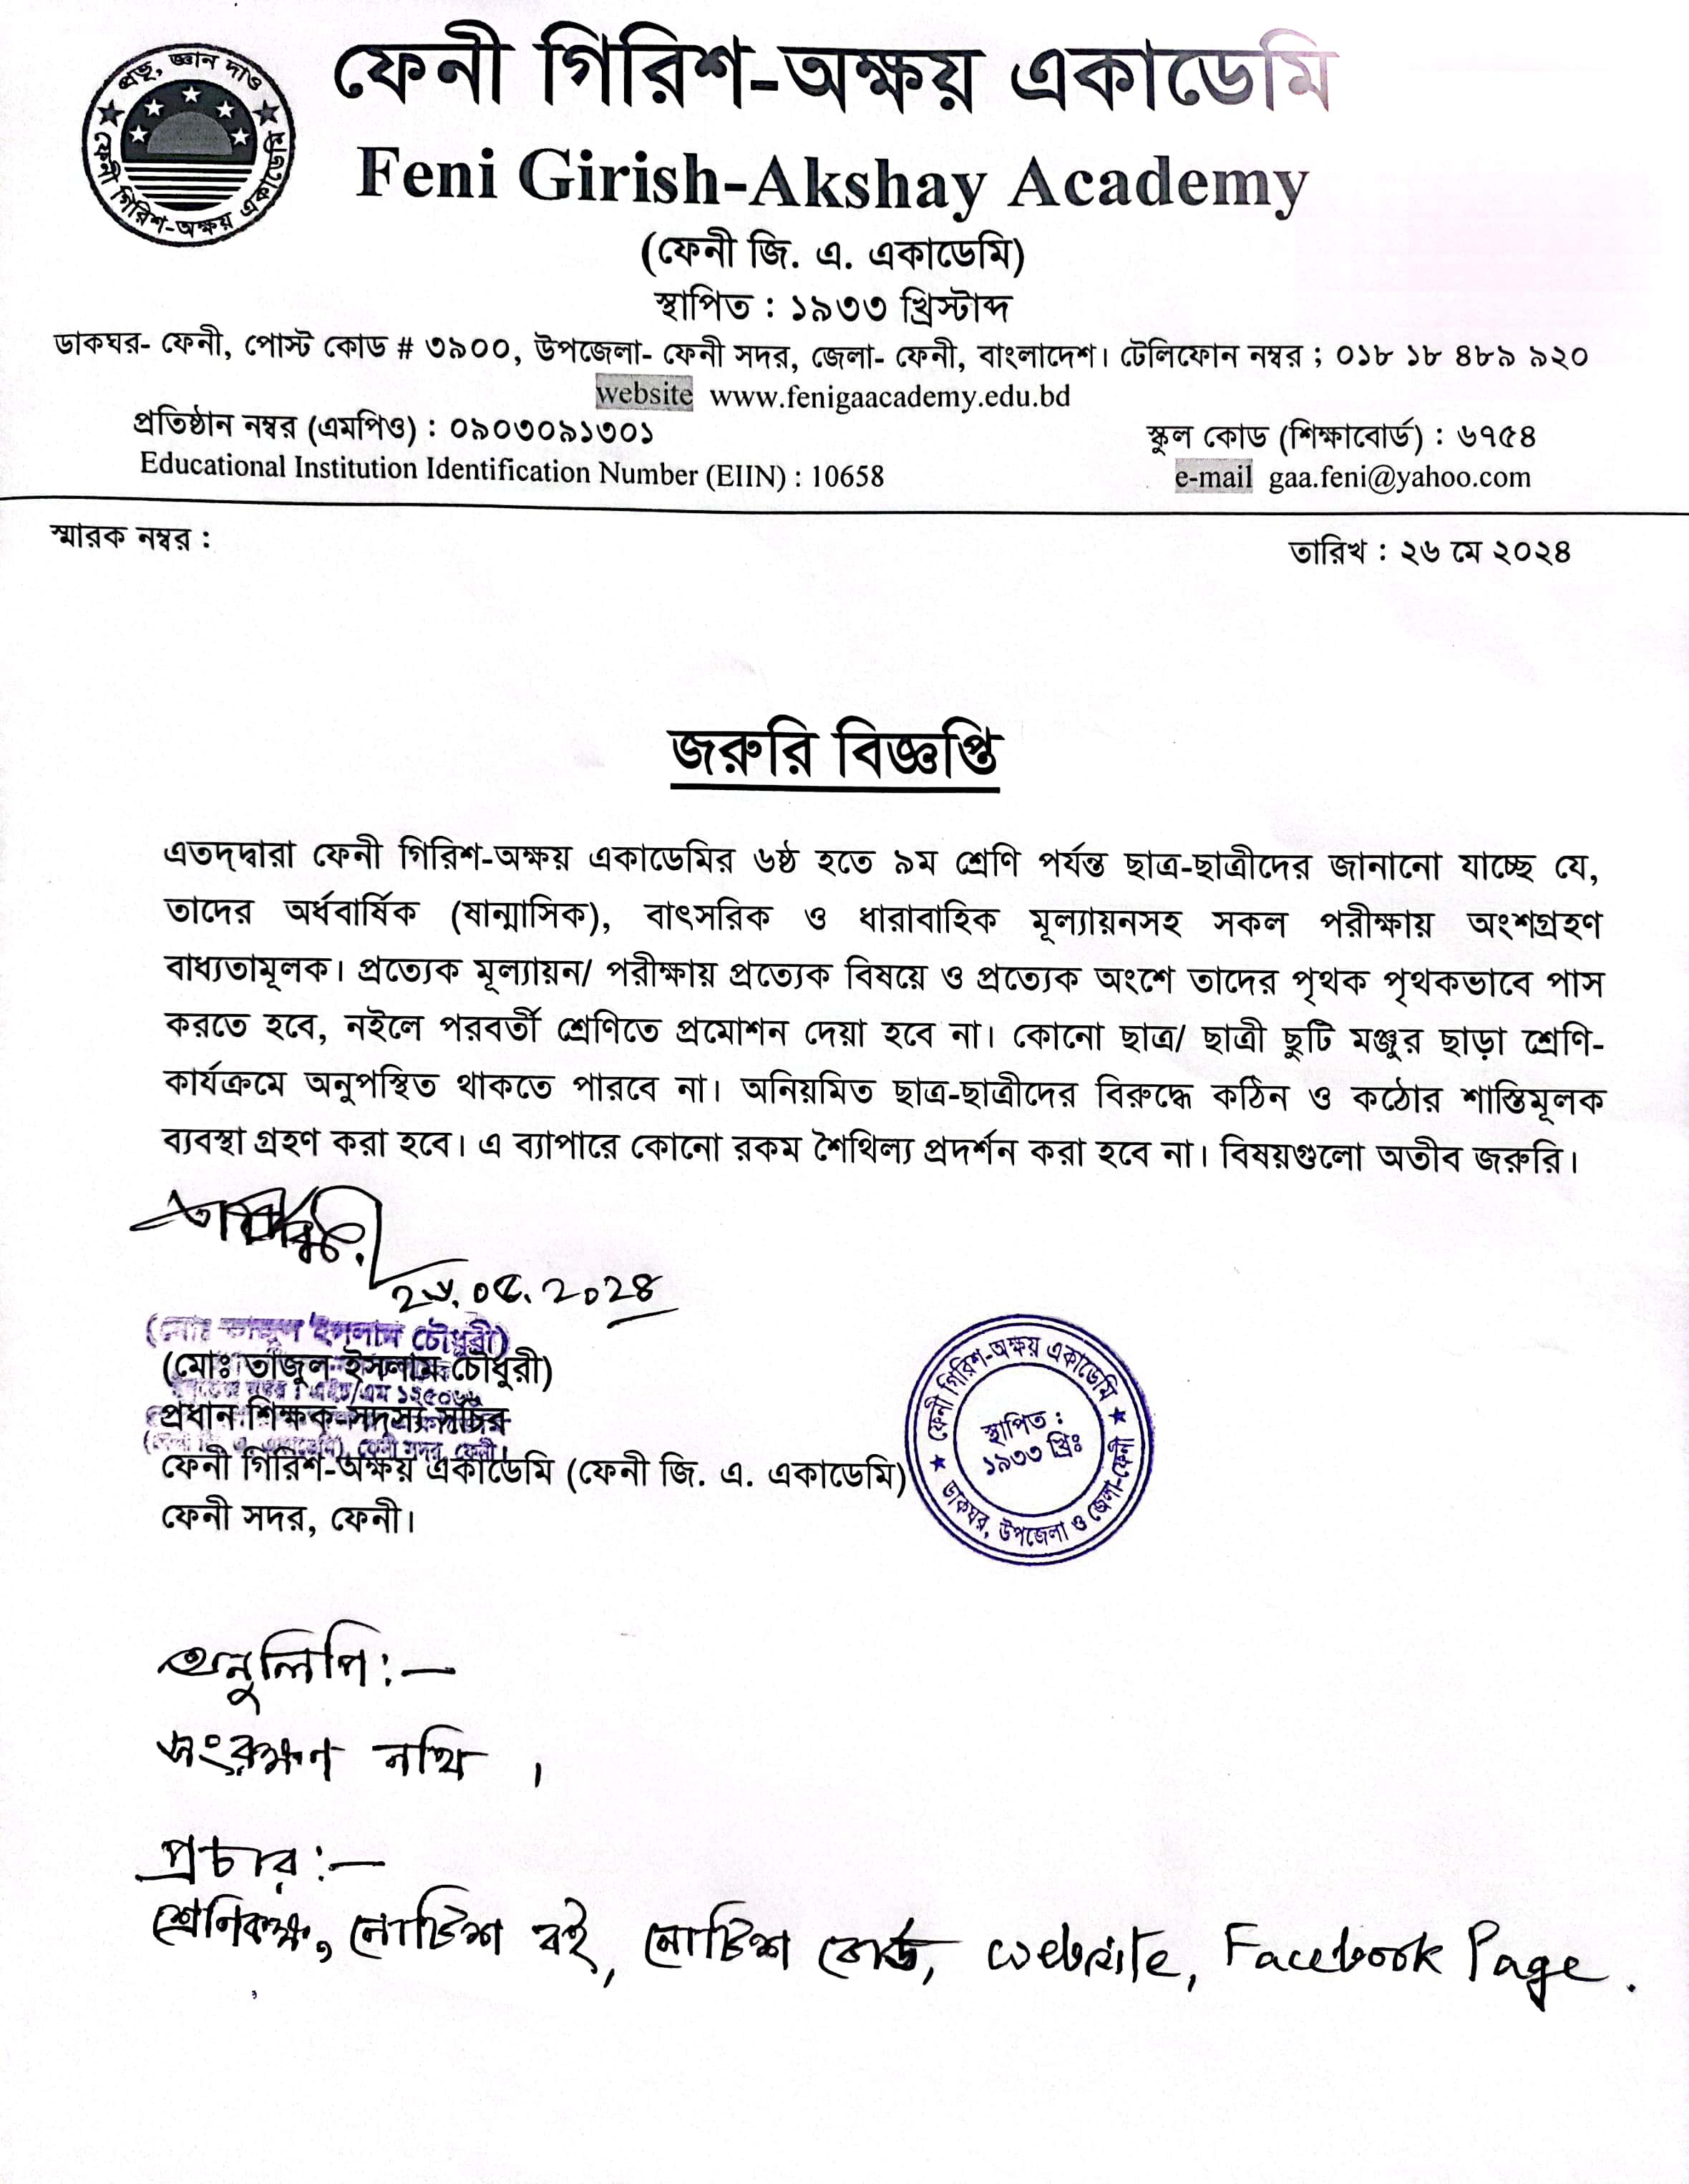 প্রভু, জ্ঞান দাও
ফেনী গিরিশ-অক্ষয় একাডেমি
ফেনী গিরিশ-অক্ষয় একাডেমি
Feni Girish-Akshay Academy
(ফেনী জি. এ. একাডেমি)
স্থাপিত : ১৯৩৩ খ্রিস্টাব্দ
ডাকঘর- ফেনী, পোস্ট কোড # ৩৯০০, উপজেলা- ফেনী সদর, জেলা- ফেনী, বাংলাদেশ। টেলিফোন নম্বর ; ০১৮ ১৮ ৪৮৯ ৯২০
website www.fenigaacademy.edu.bd
প্রতিষ্ঠান নম্বর (এমপিও) : ০৯০৩০৯১৩০১ স্কুল কোড (শিক্ষাবোর্ড) : ৬৭৫৪
Educational Institution Identification Number (EIIN) : 10658 e-mail gaa.feni@yahoo.com
স্মারক নম্বর : তারিখ : ২৬ মে ২০২৪
জরুরি বিজ্ঞপ্তি
এতদ্দ্বারা ফেনী গিরিশ-অক্ষয় একাডেমির ৬ষ্ঠ হতে ৯ম শ্রেণি পর্যন্ত ছাত্র-ছাত্রীদের জানানো যাচ্ছে যে,
তাদের অর্ধবার্ষিক (ষান্মাসিক), বাৎসরিক ও ধারাবাহিক মূল্যায়নসহ সকল পরীক্ষায় অংশগ্রহণ
বাধ্যতামূলক। প্রত্যেক মূল্যায়ন/ পরীক্ষায় প্রত্যেক বিষয়ে ও প্রত্যেক অংশে তাদের পৃথক পৃথকভাবে পাস
করতে হবে, নইলে পরবর্তী শ্রেণিতে প্রমোশন দেয়া হবে না। কোনো ছাত্র/ ছাত্রী ছুটি মঞ্জুর ছাড়া শ্রেণি-
কার্যক্রমে অনুপস্থিত থাকতে পারবে না। অনিয়মিত ছাত্র-ছাত্রীদের বিরুদ্ধে কঠিন ও কঠোর শাস্তিমূলক
ব্যবস্থা গ্রহণ করা হবে। এ ব্যাপারে কোনো রকম শৈথিল্য প্রদর্শন করা হবে না। বিষয়গুলো অতীব জরুরি।
২৬.০৫.২০২৪
(মোঃ তাজুল ইসলাম চৌধুরী)
(মোঃ তাজুল ইসলাম চৌধুরী)
প্রধান শিক্ষক-সদস্য সচিব
ফেনী গিরিশ-অক্ষয় একাডেমি (ফেনী জি. এ. একাডেমি)
ফেনী সদর, ফেনী।
ফেনী গিরিশ-অক্ষয় একাডেমি
স্থাপিত :
১৯৩৩ খ্রিঃ
ডাকঘর, উপজেলা ও জেলা-ফেনী
অনুলিপি:—
সংরক্ষণ নথি ।
প্রচার:—
শ্রেণিকক্ষ, নোটিশ বই, নোটিশ বোর্ড, website, Facebook Page.